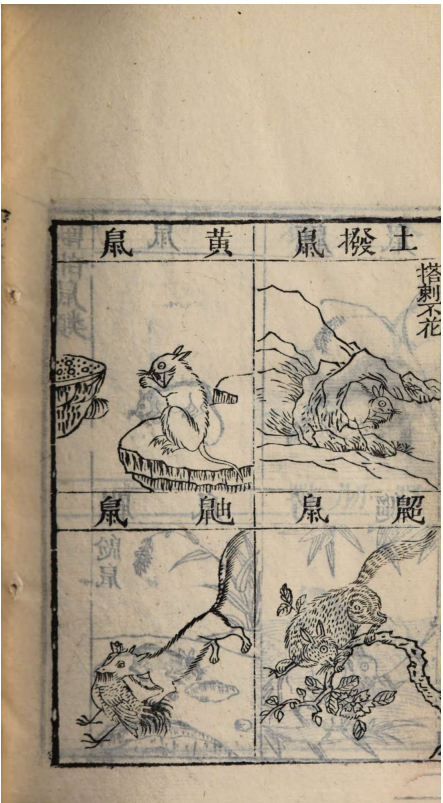 土撥鼠
搭剌不花
黃鼠
鼠
鼬鼠